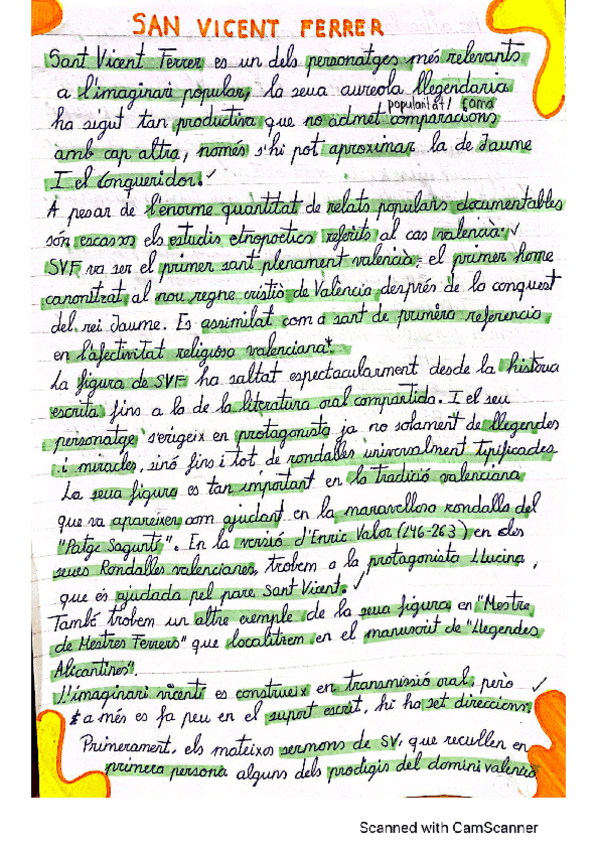 SAN VICENT FERRER
Sant Vicent Ferrer es un dels personatges més relevants
a l'imaginari popular, la seua aureola llegendaria
popularitat/ fama
ha sigut tan productiva que no admet comparacions
amb cap altra, només s'hi pot aproximar la de Jaume
I el Conqueridor. ✓
A pesar de l'enorme quantitat de relats populars documentables
són escassos els estudis etnopoètics referits al cas valencià. ✓
SVF va ser el primer sant plenament valencià, el primer home
canonitzat al nou regne cristià de València després de la conquest
del rei Jaume. Es assimilat com a sant de primera referencia
en l'afectivitat religiosa valenciana*.
La figura de SVF ha saltat espectacularment desde la història
escrita fins a la de la literatura oral compartida. I el seu
personatge s'erigeix en protagonista ja no solament de llegendes
i miracles, sinó fins i tot de rondalles universalment tipificades
La seua figura es tan important en la tradició valenciana
que va apareixer com ajudant en la maravellosa rondalla del
"Patge Saguntí". En la versió d'Enric Valor (246-263) en els
seues Rondalles valencianes, trobem a la protagonista Llucina,
que és ajudada pel pare Sant Vicent. ✓
També trobem un altre exemple de la seua figura en "Mestre
de Mestres Ferrers" que localitzem en el manuscrit de "Llegendes
Alicantines".
L'imaginari vicentí es construeix en transmissió oral, però ✓
a més es fa peu en el suport escrit, hi ha set direccions
Primerament, els mateixos sermons de SV, que recullen en
primera persona alguns dels prodigis del domini valencià
Scanned with CamScanner